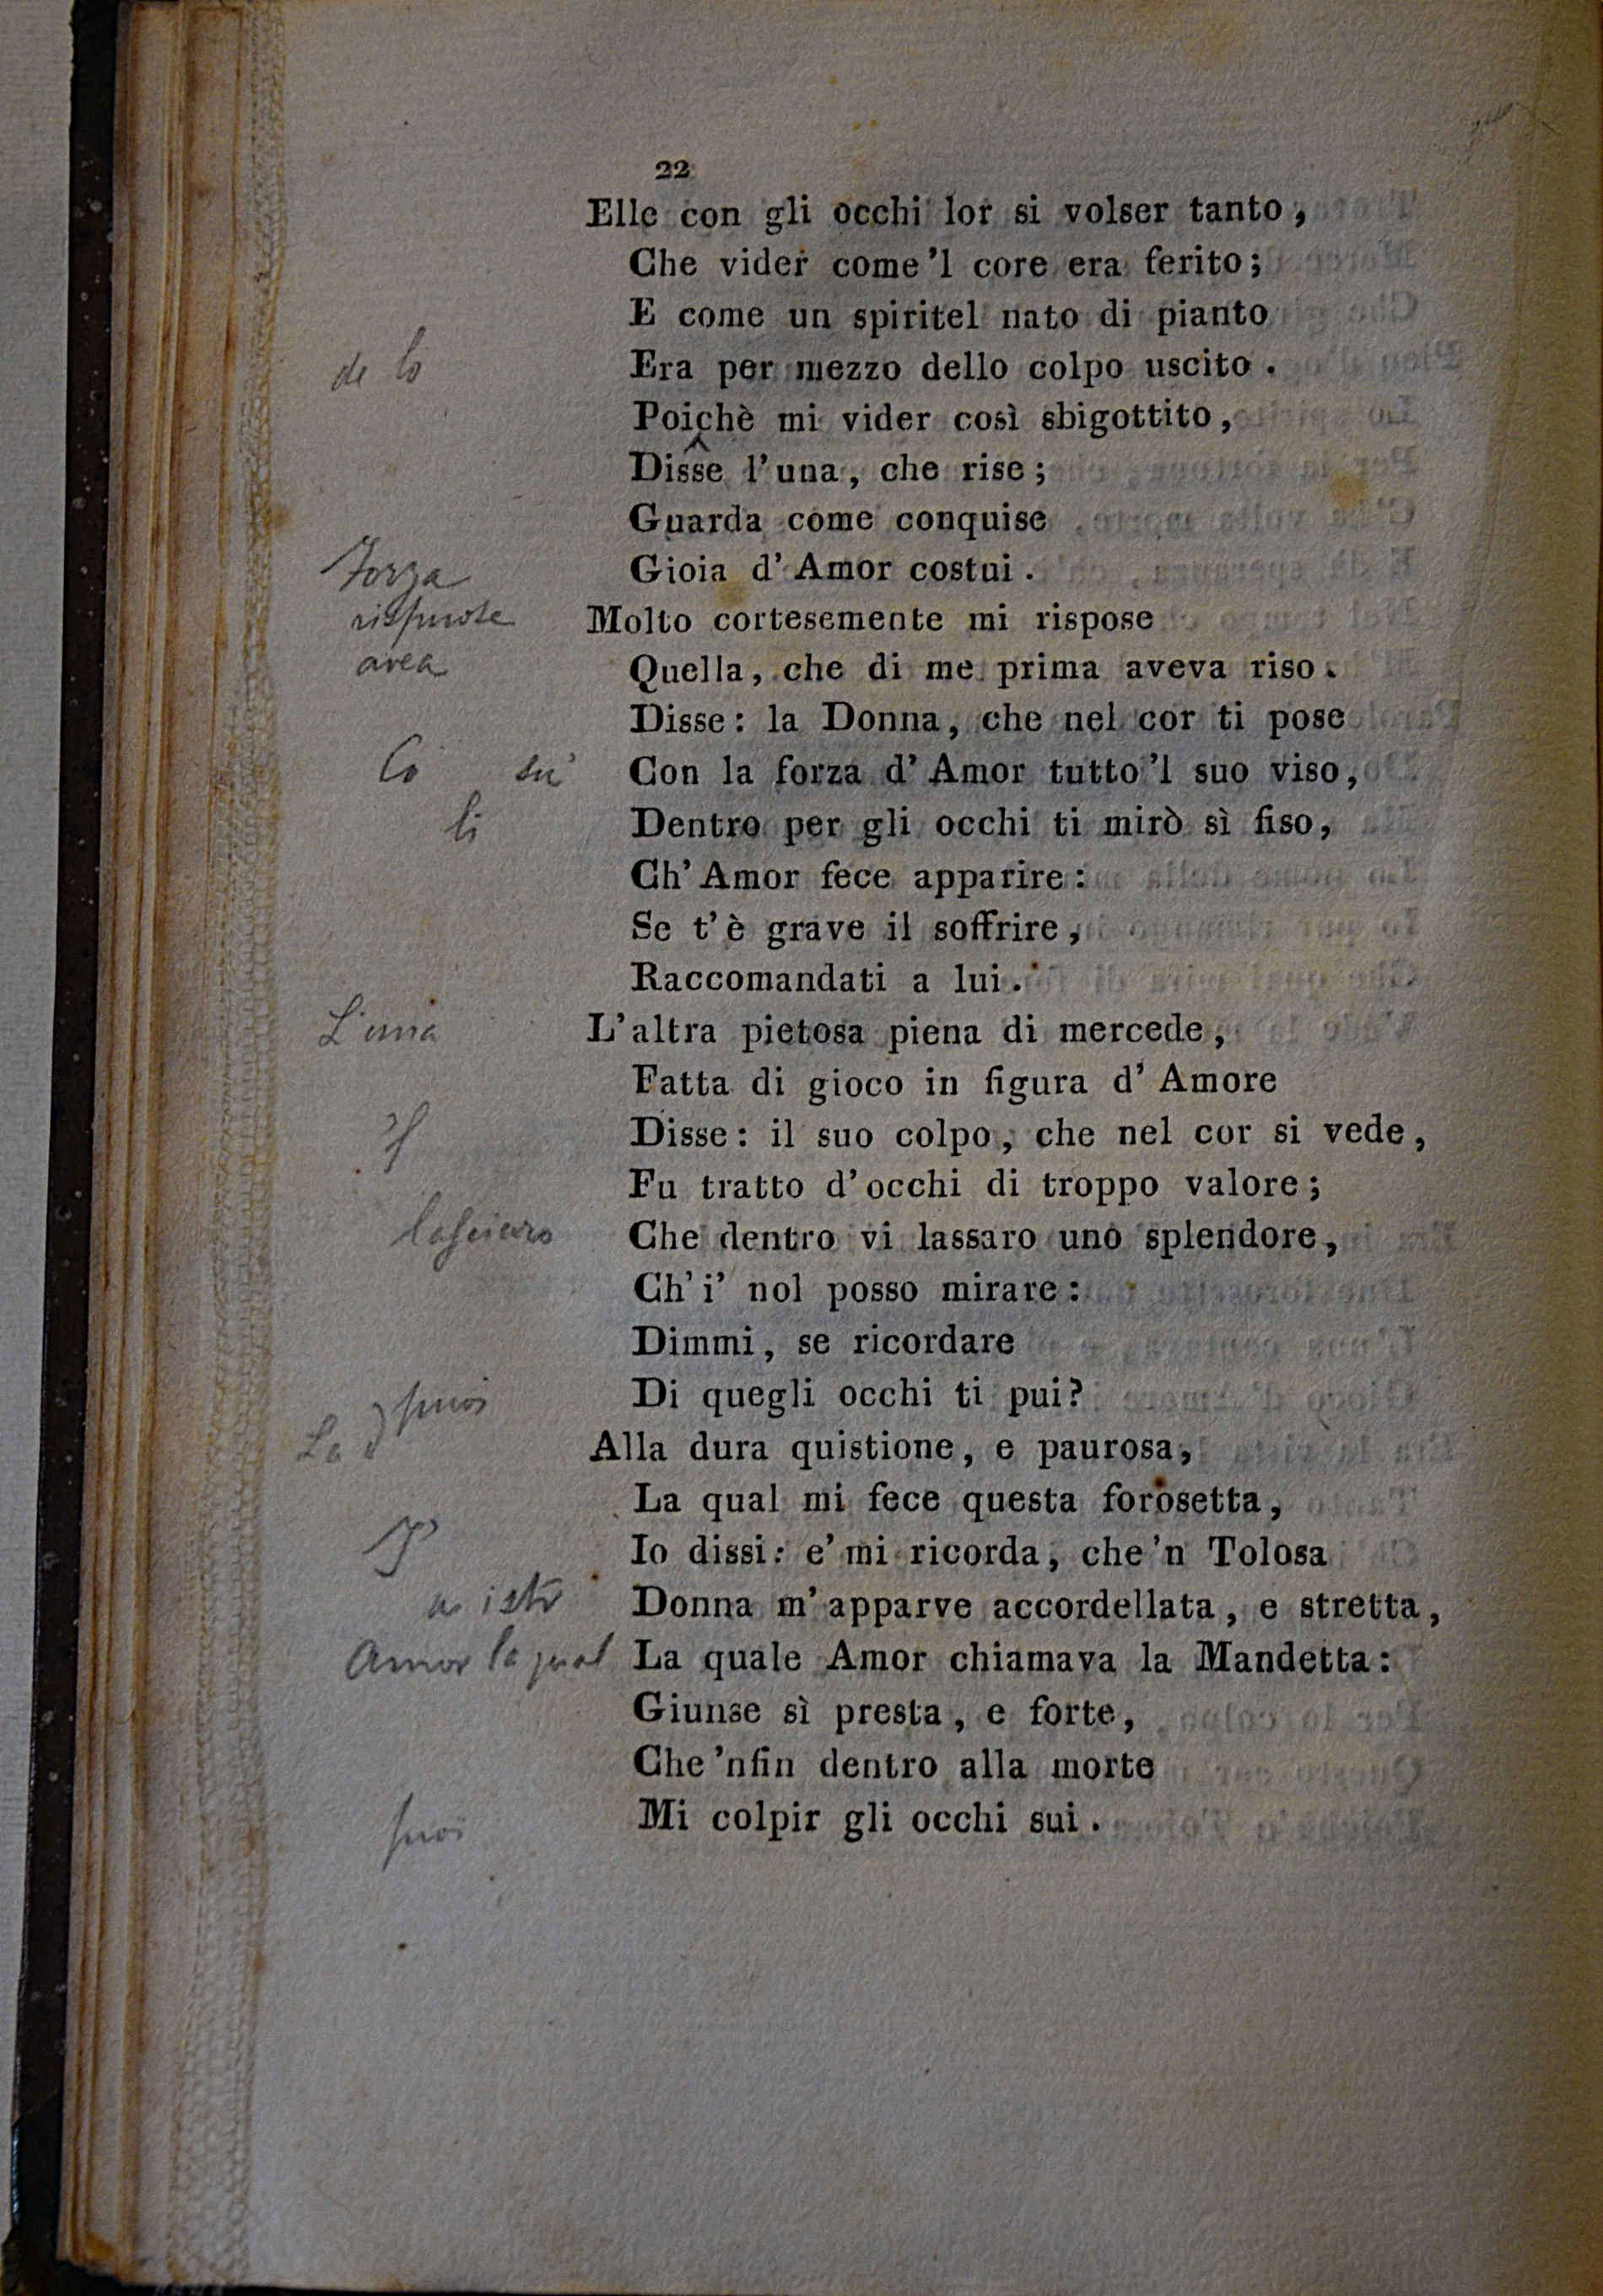 22
Elle con gli occhi lor si volser tanto,
Che vider come'l core era ferito;
E come un spiritel nato di pianto
de lo Era per mezzo dello colpo uscito.
Poichè mi vider così sbigottito,
Disse l'una, che rise;
Guarda come conquise
forza Gioia d'Amor costui.
rispuose Molto cortesemente mi rispose
avea Quella, che di me prima aveva riso.
Disse: la Donna, che nel cor ti pose
Co su' Con la forza d'Amor tutto'l suo viso,
li Dentro per gli occhi ti mirò sì fiso,
Ch'Amor fece apparire:
Se t'è grave il soffrire,
Raccomandati a lui.
L'una L'altra pietosa piena di mercede,
Fatta di gioco in figura d'Amore
Disse: il suo colpo, che nel cor si vede,
Fu tratto d'occhi di troppo valore;
lasciaro Che dentro vi lassaro uno splendore,
Ch'i' nol posso mirare:
Dimmi, se ricordare
Di quegli occhi ti pui?
Alla dura quistione, e paurosa,
La qual mi fece questa forosetta,
Io dissi: e' mi ricorda, che'n Tolosa
Donna m'apparve accordellata, e stretta,
Amor la qual La quale Amor chiamava la Mandetta:
Giunse sì presta, e forte,
Che'nfin dentro alla morte
suoi Mi colpir gli occhi sui.